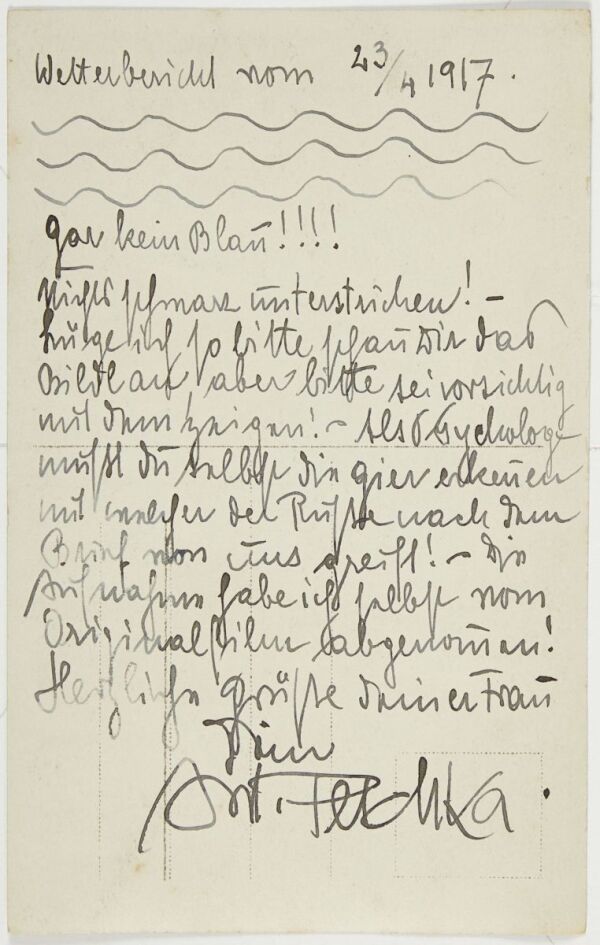 Wetterbericht vom 23/4 1917.
gar kein Blau!!!!
Nichts schwarz unterstrichen! –
ich so bitte schau Dir das
Bildl an, aber bitte sei vorsichtig
mit dem zeigen! – Als Psychologe
mußt du selbst die gier erkeñen
mit welcher der Russe nach dem
Brief von uns greift! – Die
Aufnahme habe ich selbst vom
Originalfilm abgenom̄en!
Herzliche Grüße deiner Frau
Dein
Ant. Peschka.